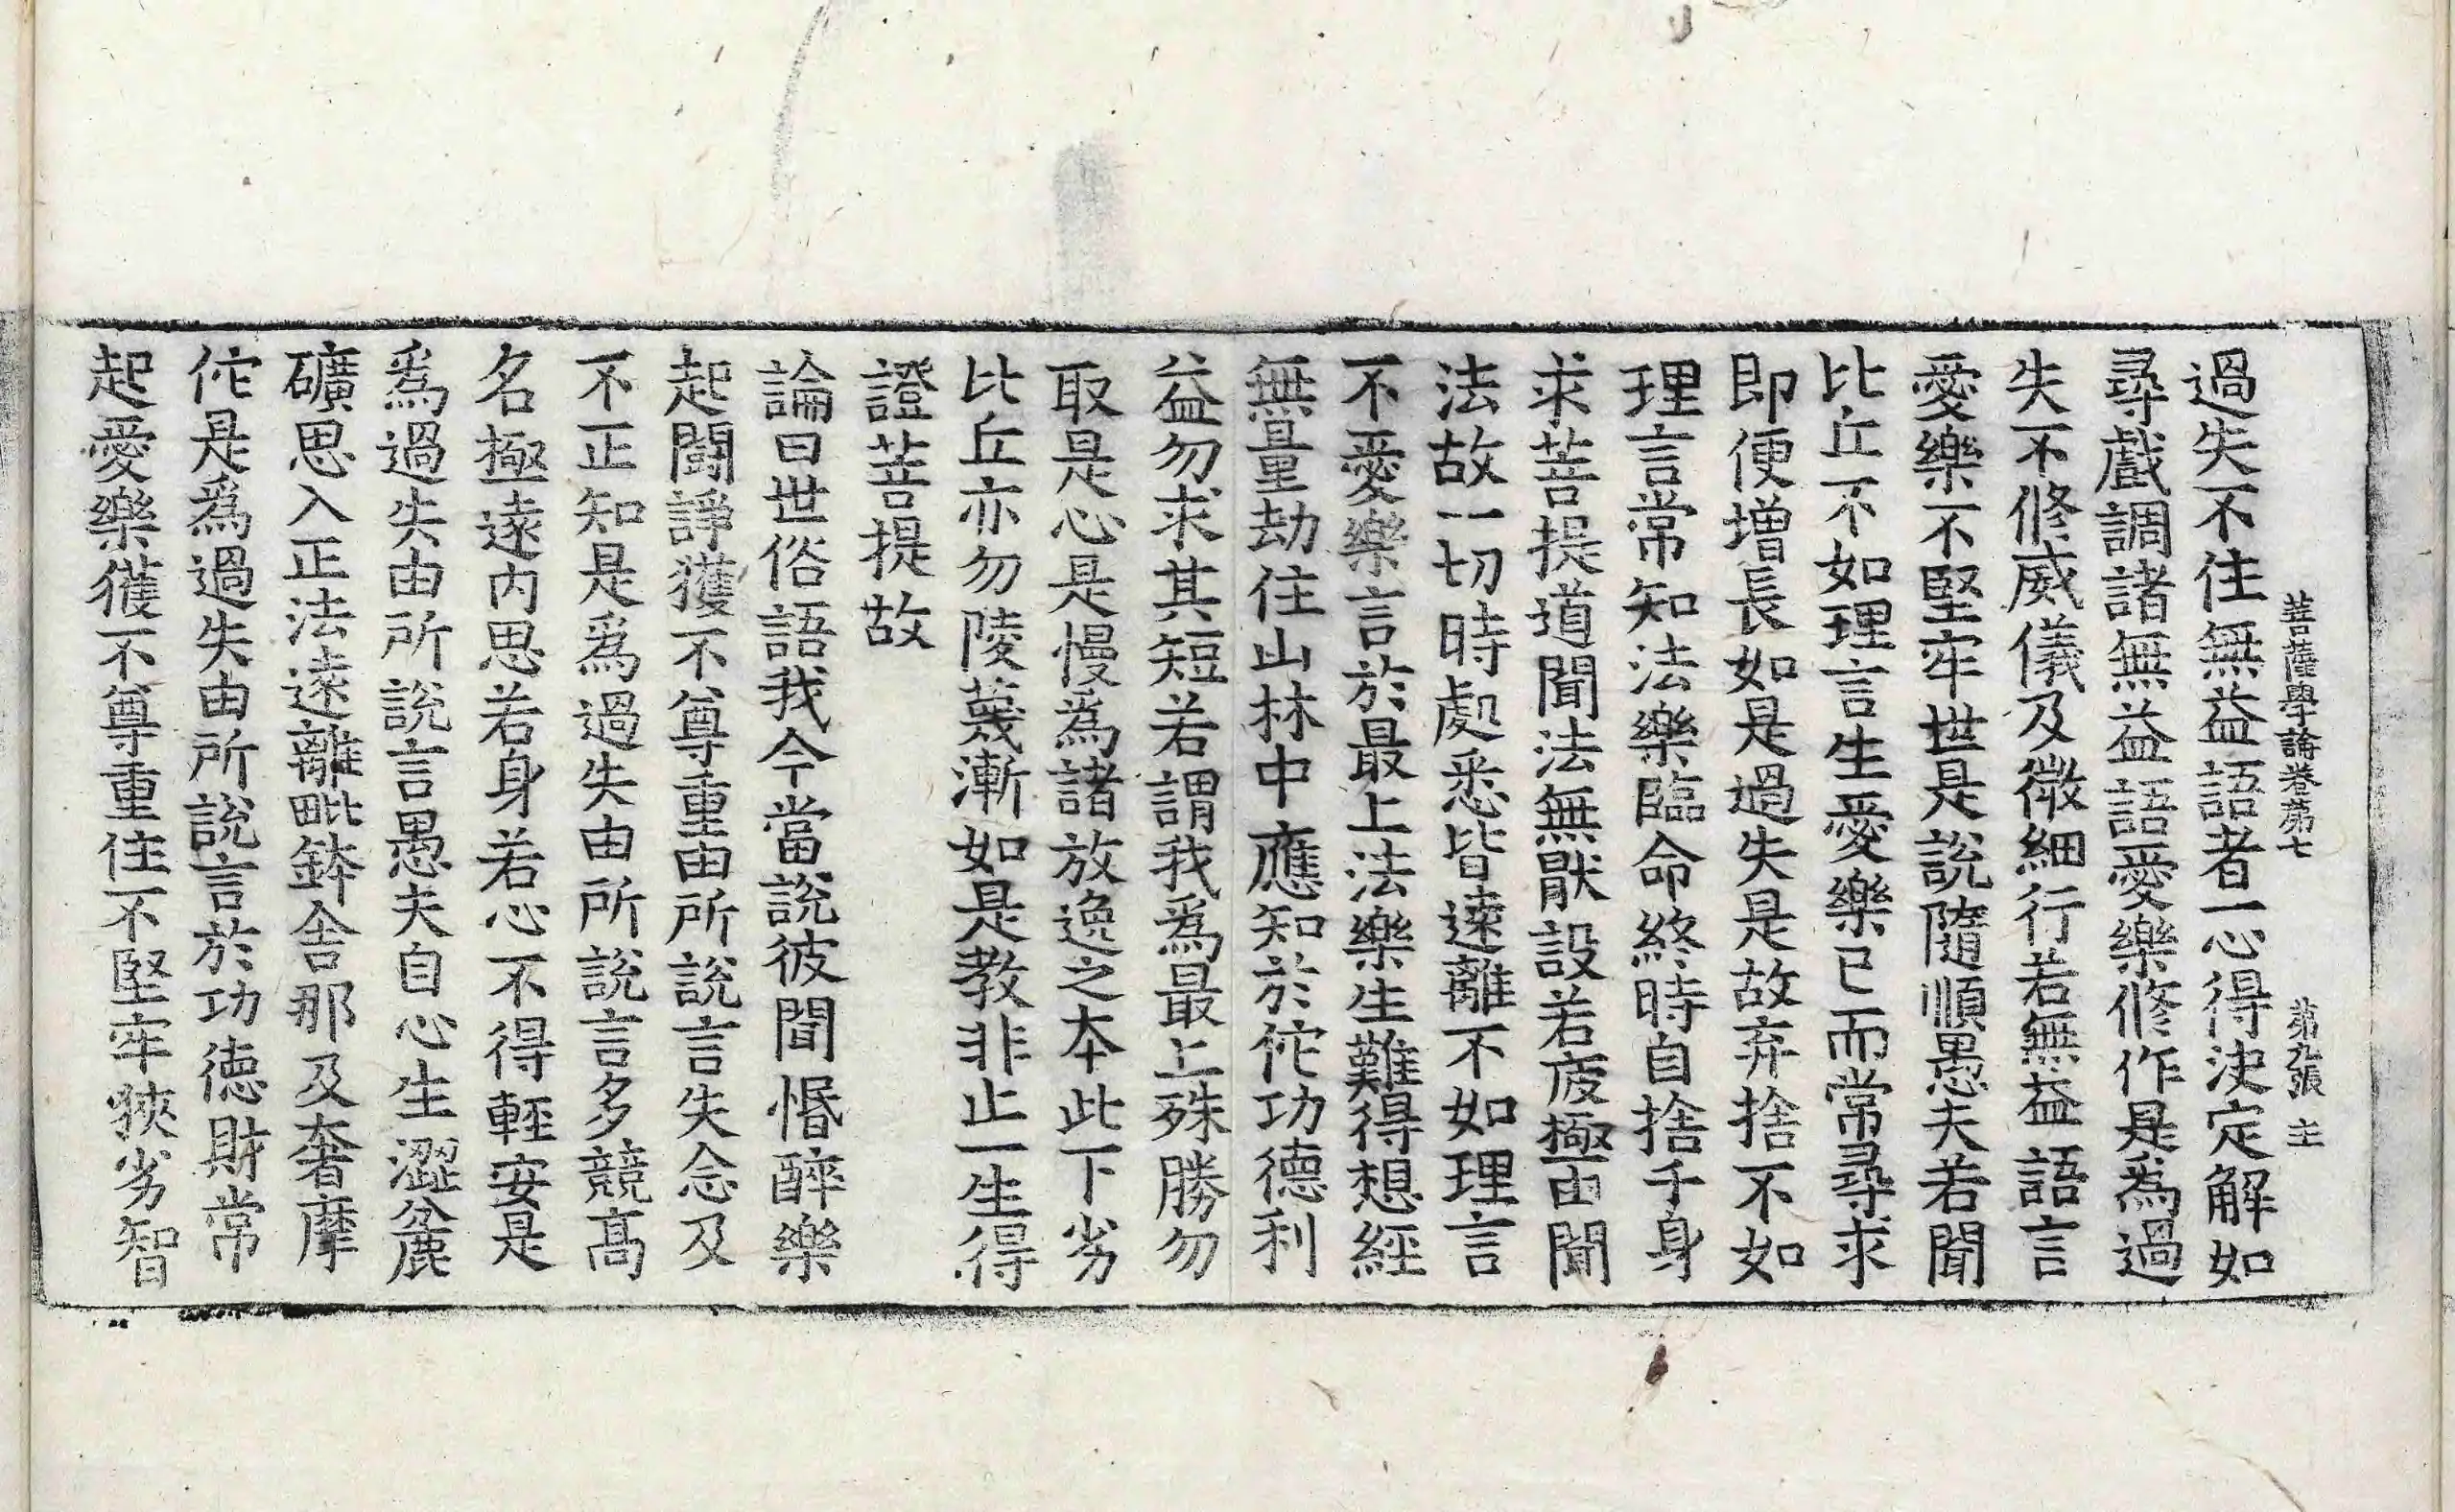 菩薩學論卷第七 第九張 主
過失不住無益語者一心得決定解如
尋戲調諸無益語愛樂修作是為過
失不修威儀及微細行若無益語言
愛樂不堅牢世是說隨順愚夫若聞
比丘不如理言生愛樂已而常尋求
即便增長如是過失是故弃捨不如
理言常知法樂臨命終時自捨手身
求菩提道聞法無猒設若疲極由聞
法故一切時處悉皆遠離不如理言
不愛樂言於最上法樂生難得想經
無量劫住山林中應知於佗功德利
益勿求其短若謂我爲最上殊勝勿
取是心是慢爲諸放逸之本此下劣
比丘亦勿陵蔑漸如是教非止一生得
證菩提故
論曰世俗語我今當說彼聞惛醉樂
起鬪諍獲不尊重由所說言失念及
不正知是爲過失由所說言多競髙
名極遠内思若身若心不得輕安是
爲過失由所說言愚夫自心生澀麁
礦思入正法遠離毗鉢舍那及奢摩
佗是爲過失由所說言於功德財常
起愛樂獲不尊重住不堅牢狹劣智